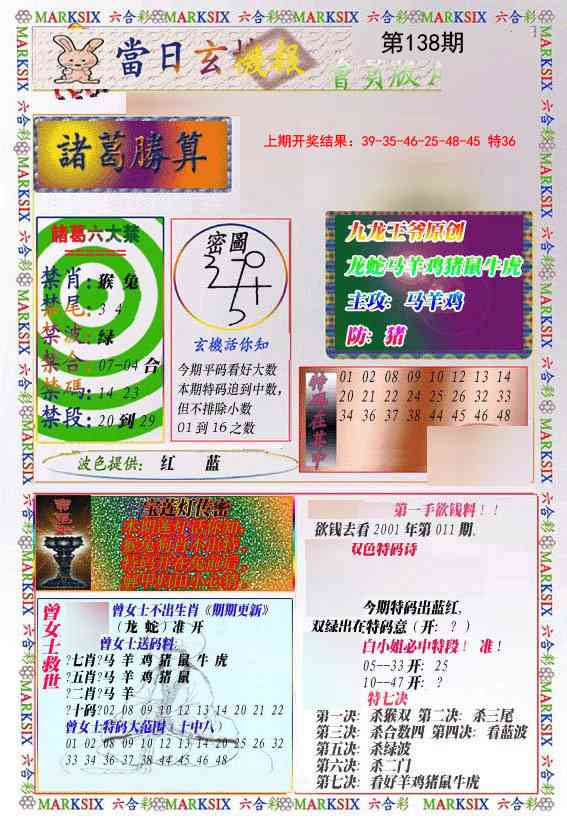 MARKSIX 六合彩 MARKSIX 六合彩 MARKSIX 六合彩 MARKSIX 六合彩
當日玄機報
第138期
諸葛勝算
上期开奖结果: 39-35-46-25-48-45 特36
諸葛六大禁
禁肖: 猴 兔
禁尾: 3 4
禁波: 绿
禁合: 07-04 合
禁碼: 14 23
禁段: 20 到 29
密圖
玄機活你知
今期平码看好大数
本期特码追到中数,
但不排除小数
01 到 16 之数
九龙王爷原创
龙蛇马羊鸡猪鼠牛虎
主攻: 马羊鸡
防: 猪
特码在其中
01 02 08 09 10 12 13 14
20 21 22 24 25 26 32 33
34 36 37 38 44 45 46 48
波色提供: 红 蓝
宝莲灯传密
曾女士救世
曾女士不出生肖《期期更新》
(龙 蛇) 准 开
曾女士送码料:
?七肖?马 羊 鸡 猪 鼠 牛 虎
?五肖?马 羊 鸡 猪 鼠
?二肖?马 羊
?十码?02 08 09 10 12 13 14 20 21 22
曾女士特码大范围〈十中八〉
01 02 08 09 10 12 13 14 20 25 26 32
33 34 36 37 38 44 45 46 48
第一手欲钱料!!
欲钱去看 2001 年第 011 期.
双色特码诗
今期特码出蓝红,
双绿出在特码意 (开: ? )
白小姐必中特段! 准!
05--33 开: 25
10--47 开: ?
特七决
第一决: 杀猴双 第二决: 杀三尾
第三决: 杀合数四 第四决: 看蓝波
第五决: 杀绿波
第六决: 杀二门
第七决: 看好羊鸡猪鼠牛虎
MARKSIX 六合彩 MARKSIX 六合彩 MARKSIX 六合彩 MARKSIX 六合彩